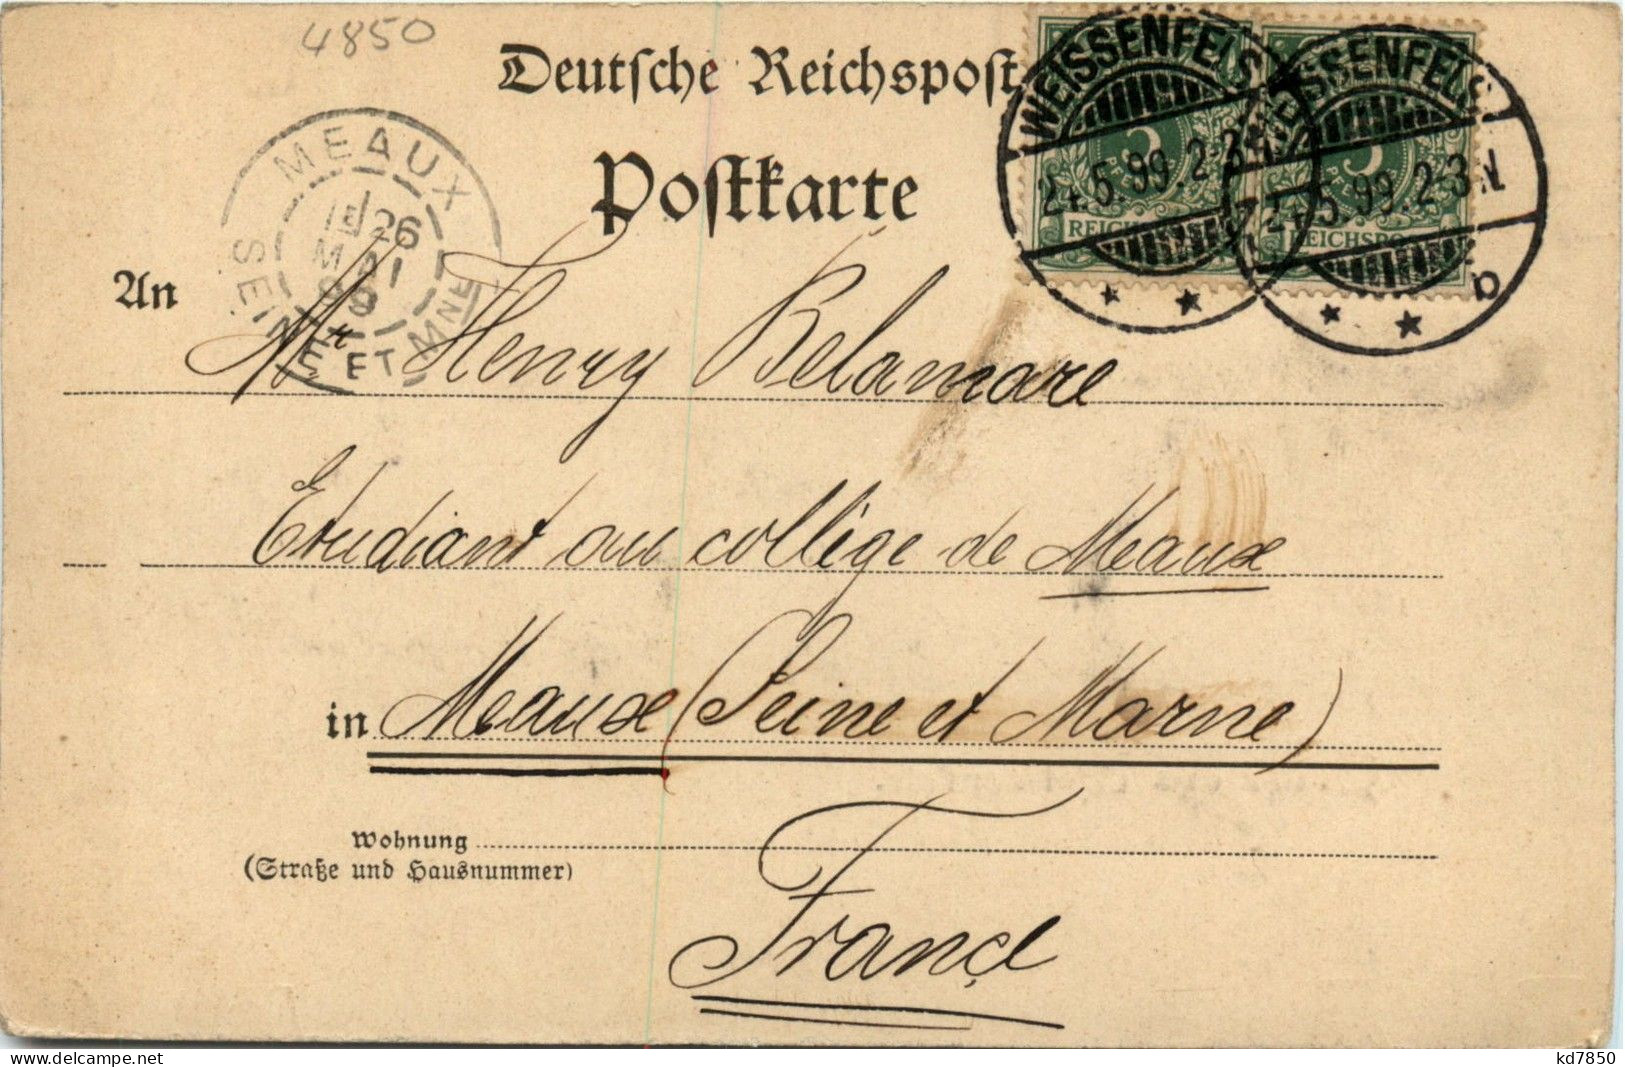 4850
Deutsche Reichspost
Postkarte
WEISSENFELS
24.5.99.2-3N
5
REICHSPOST
b
WEISSENFELS
24.5.99.2-3N
5
REICHSPOST
MEAUX
1E 26
MAI
99
SEINE ET MNE
An
Mr Henry Belamare
Etudiant au collège de Meaux
in Meaux (Seine et Marne)
Wohnung
(Straße und Hausnummer)
France
delcampe.net
kd7850